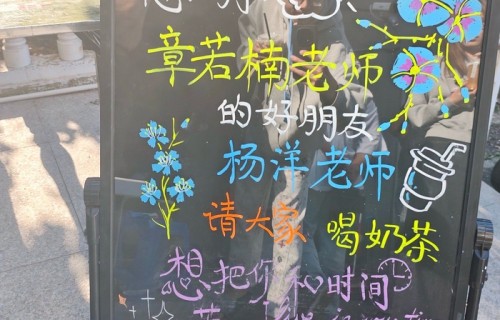 章若楠老师
的好朋友
杨洋老师
请大家
喝奶茶
想把你和时间